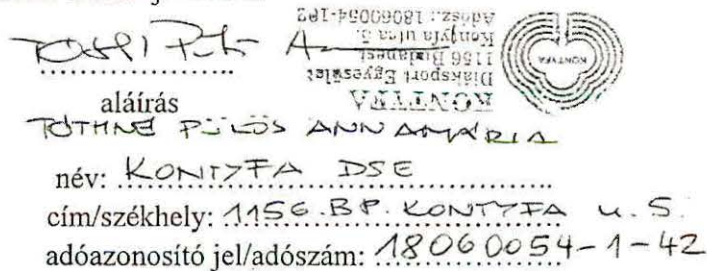 KONTYFA
Diáksport Egyesület
1156 Budapest
Kontyfa utca 5.
Adósz.: 18060054-1-42
KONTYFA
aláírás
TÓTHNÉ PÜLÖS ANNAMÁRIA
név: KONTYFA DSE
cím/székhely: 1156. BP. KONTYFA u. 5.
adóazonosító jel/adószám: 18060054-1-42